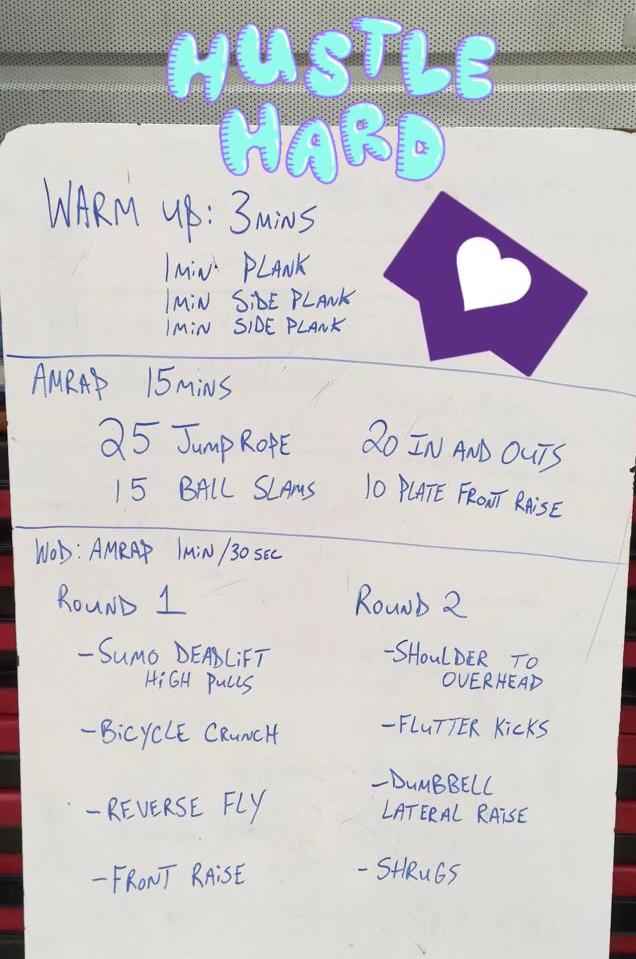 HUSTLE
HARD
WARM UP: 3MiNS
1MiN PLANK
1MiN SiDE PLANK
1MiN SIDE PLANK
AMRAP 15MiNS
25 JUMP ROPE
15 BALL SLAMS
20 IN AND OUTS
10 PLATE FRONT RAiSE
WOD: AMRAP 1MiN/30 SEC
ROUND 1
-SUMO DEADLiFT
HiGH PULLS
-BiCYCLE CRUNCH
-REVERSE FLY
-FRONT RAISE
ROUND 2
-SHOULDER TO
OVERHEAD
-FLUTTER KiCKS
-DUMBBELL
LATERAL RAiSE
-SHRUGS